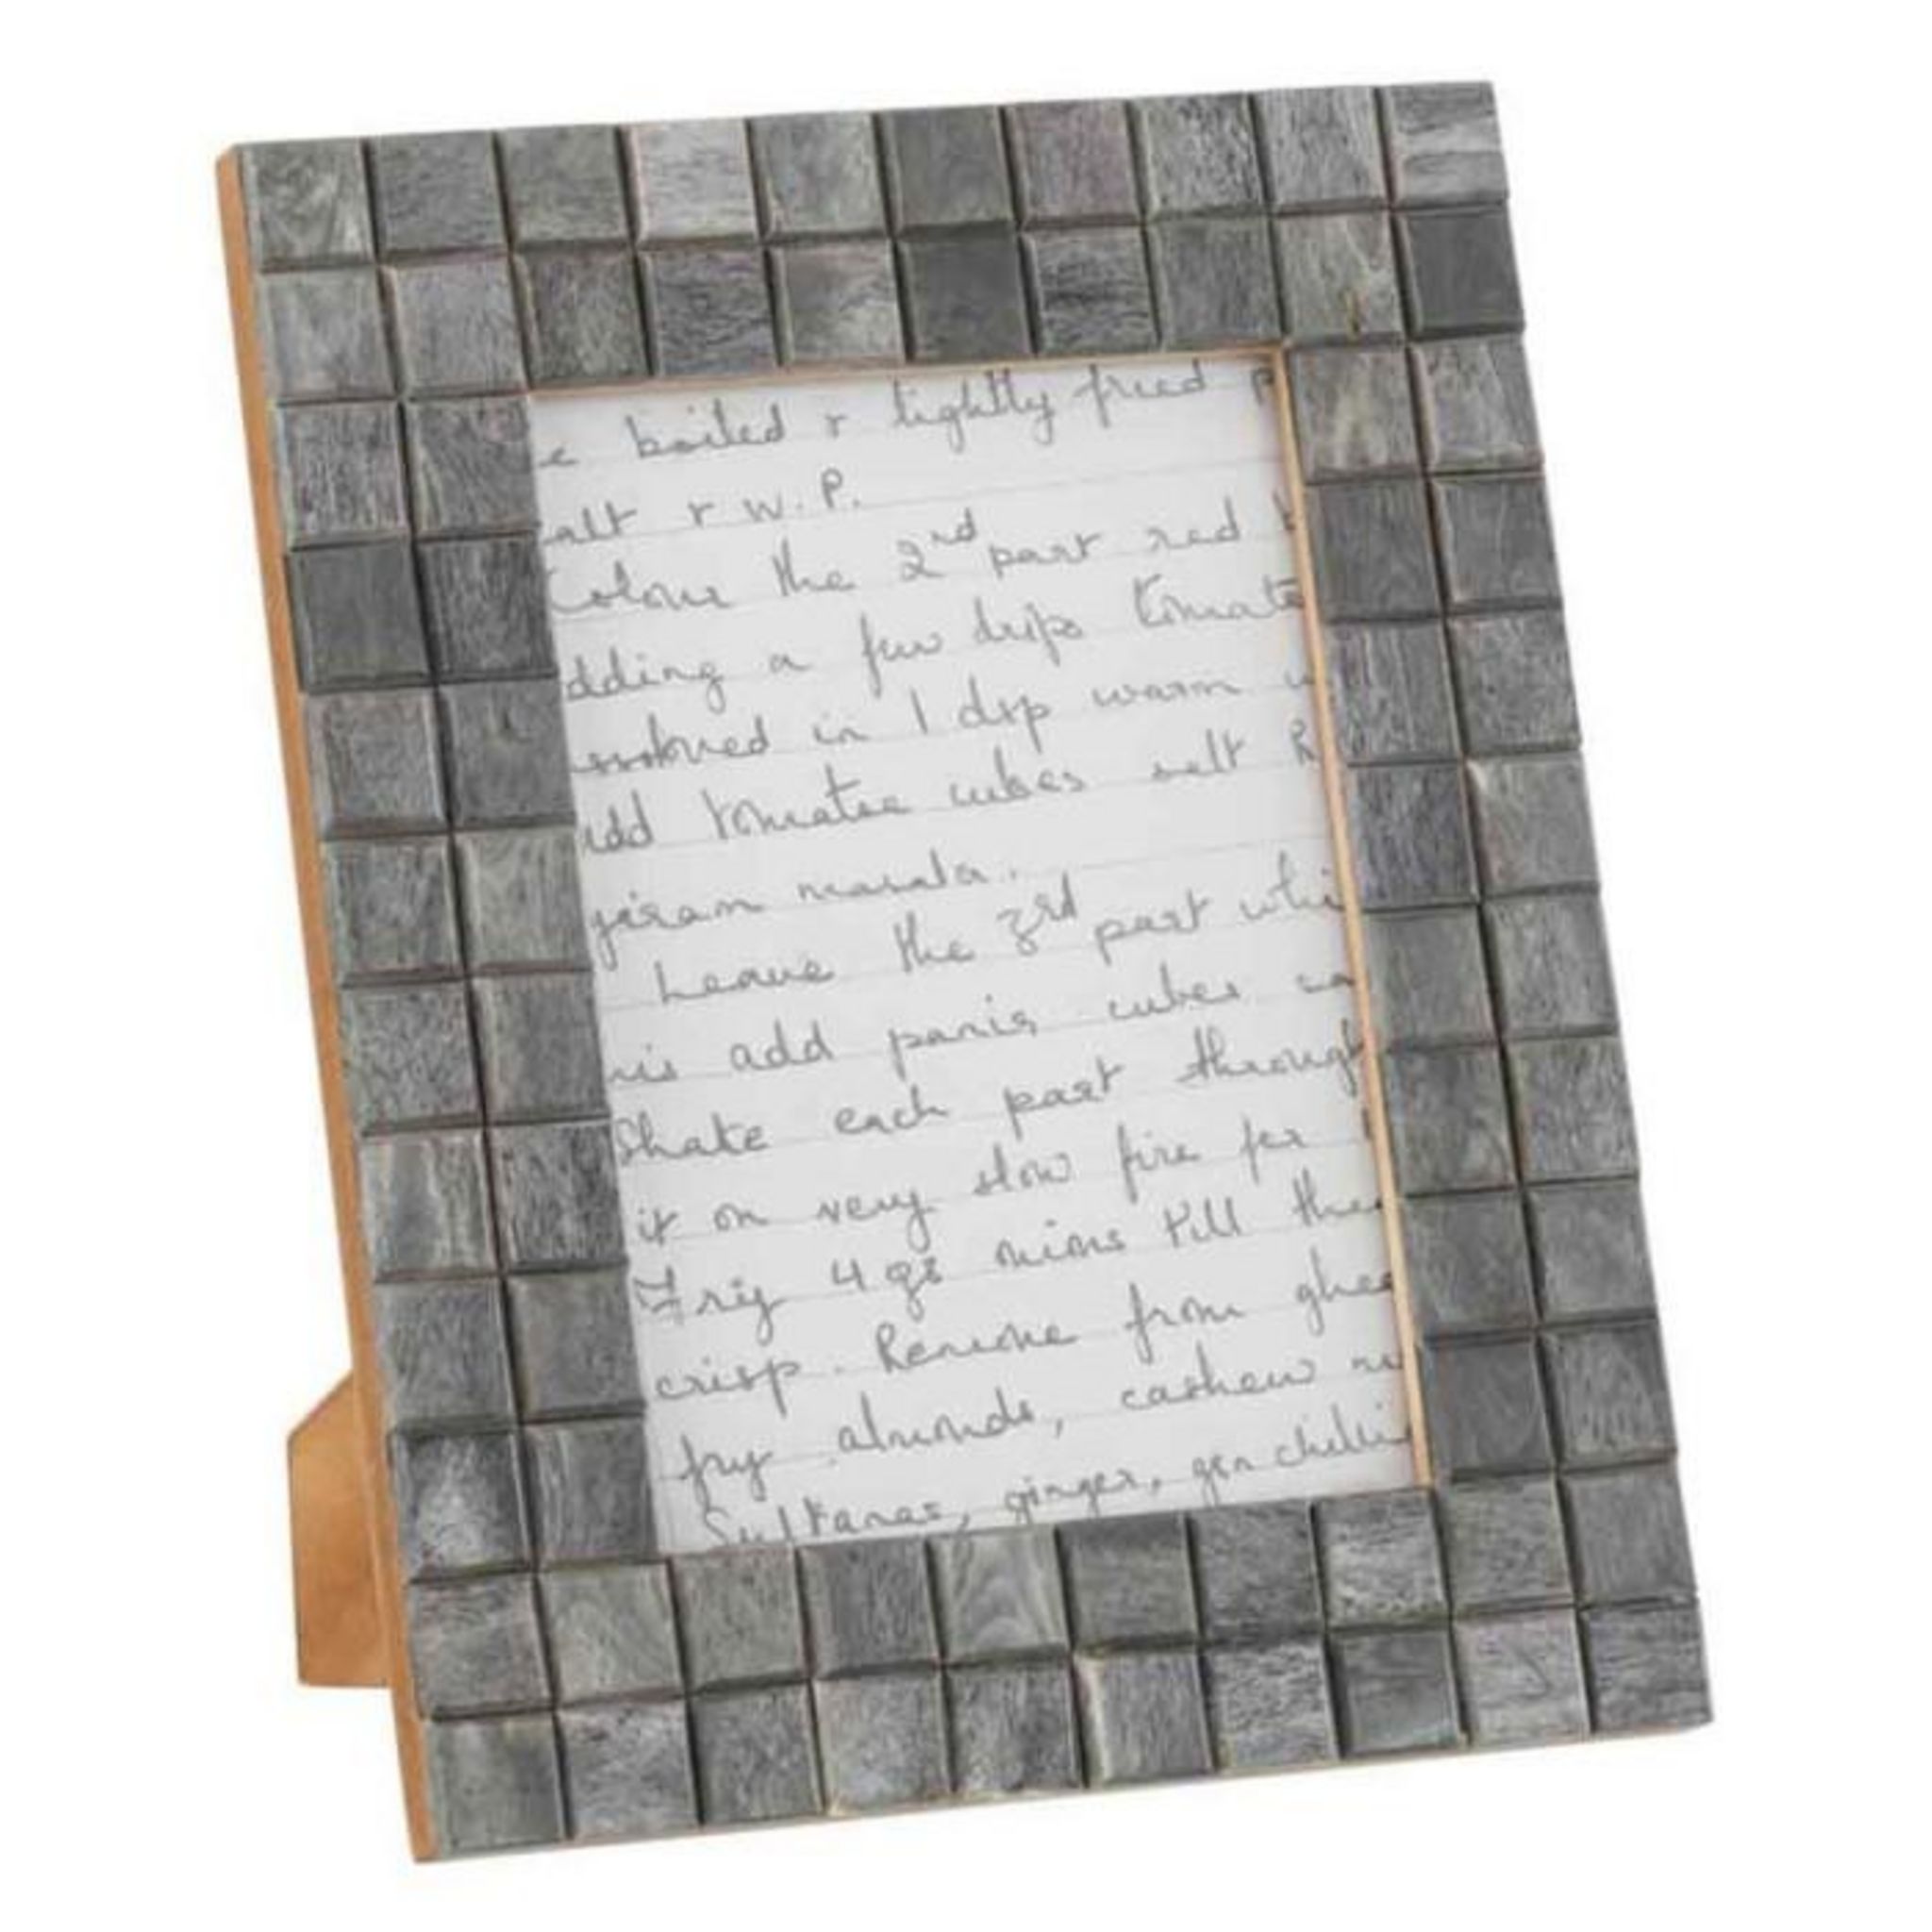 e boiled r lightly fried p
alt r w.P.
Colour the 2nd part red
dding a few drips tomato
ssolved in 1 dsp warm w
add tomatoe cubes salt R
garam masala.
Leave the 3rd part whi
his add panir cubes sa
Shake each part through
it on very slow fire for
Fry 4 gs mins till the
crisp. Remove from ghee
fry almonds, cashew nu
Sultanas, ginger, grn chilli